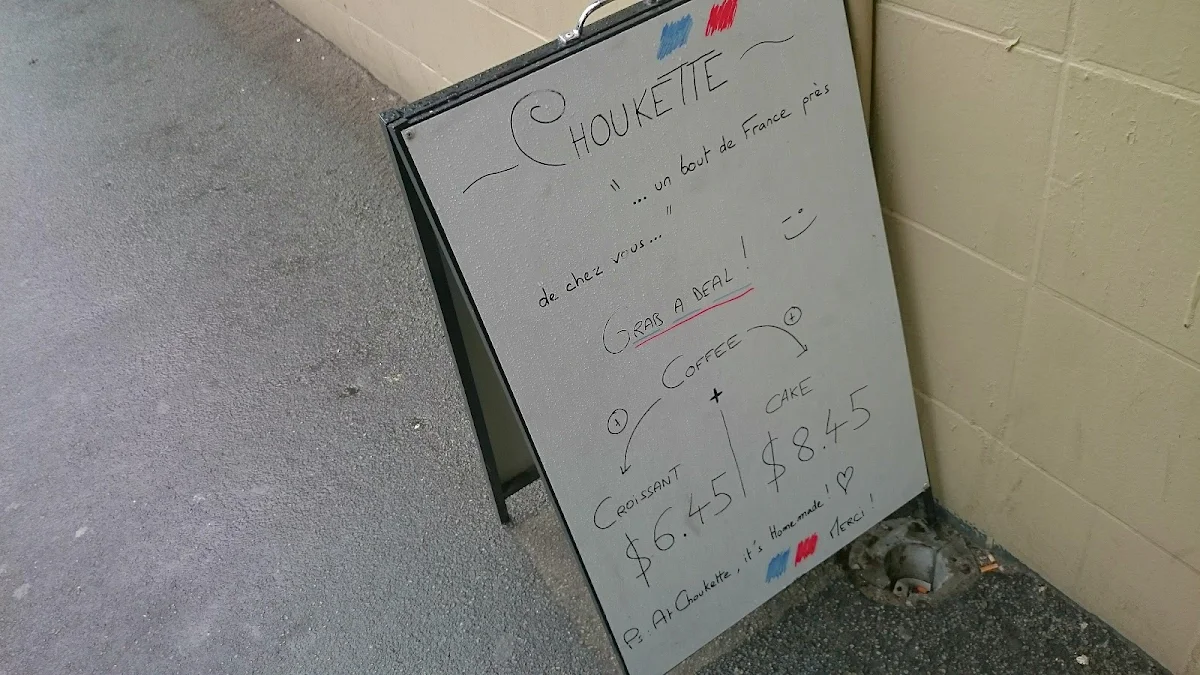 CHOUKETTE
"... un bout de France près
de chez vous..."
GRAB A DEAL!
COFFEE
+ + +
CAKE
CROISSANT
$8.45
$6.45
Ps: At Choukette, it's Homemade! ♡
MERCI!